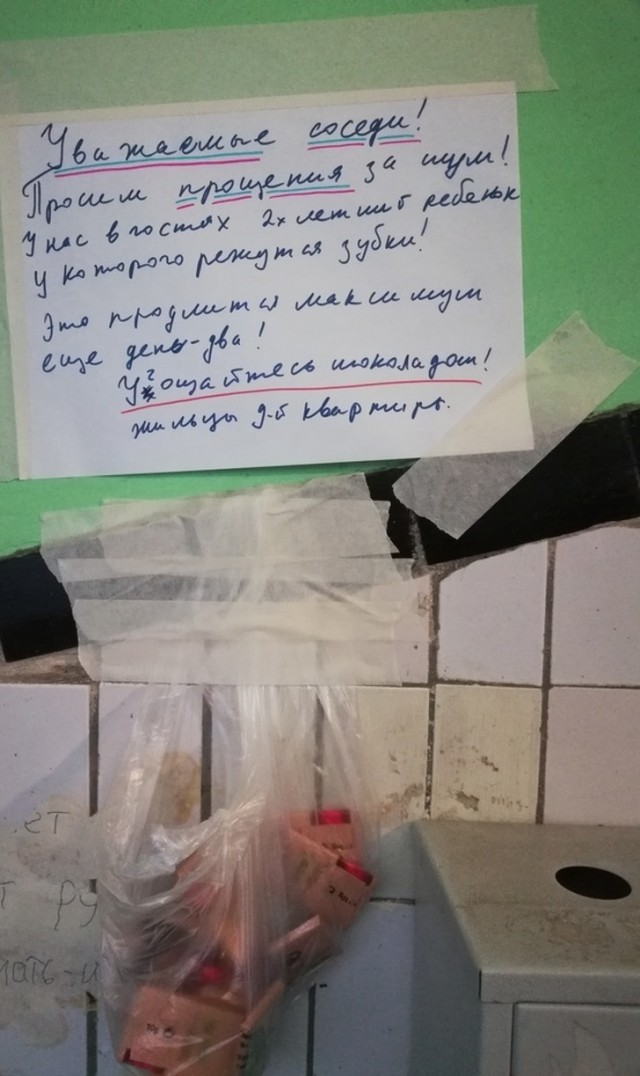 Уважаемые соседи!
Просим прощения за шум!
У нас в гостях 2х летний ребенок
у которого режутся зубки!
Это продлится максимум
еще день-два!
Угощайтесь шоколадом!
жильцы 9-й квартиры.
ет
т ру
мать-и